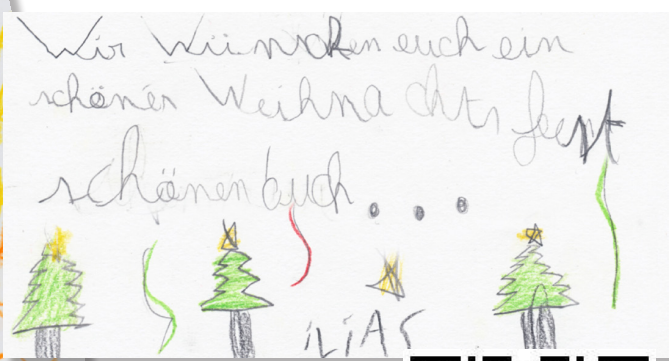 Wir Wünschen euch ein
schönen Weihnachts feest
schönen buch...
iLiAS